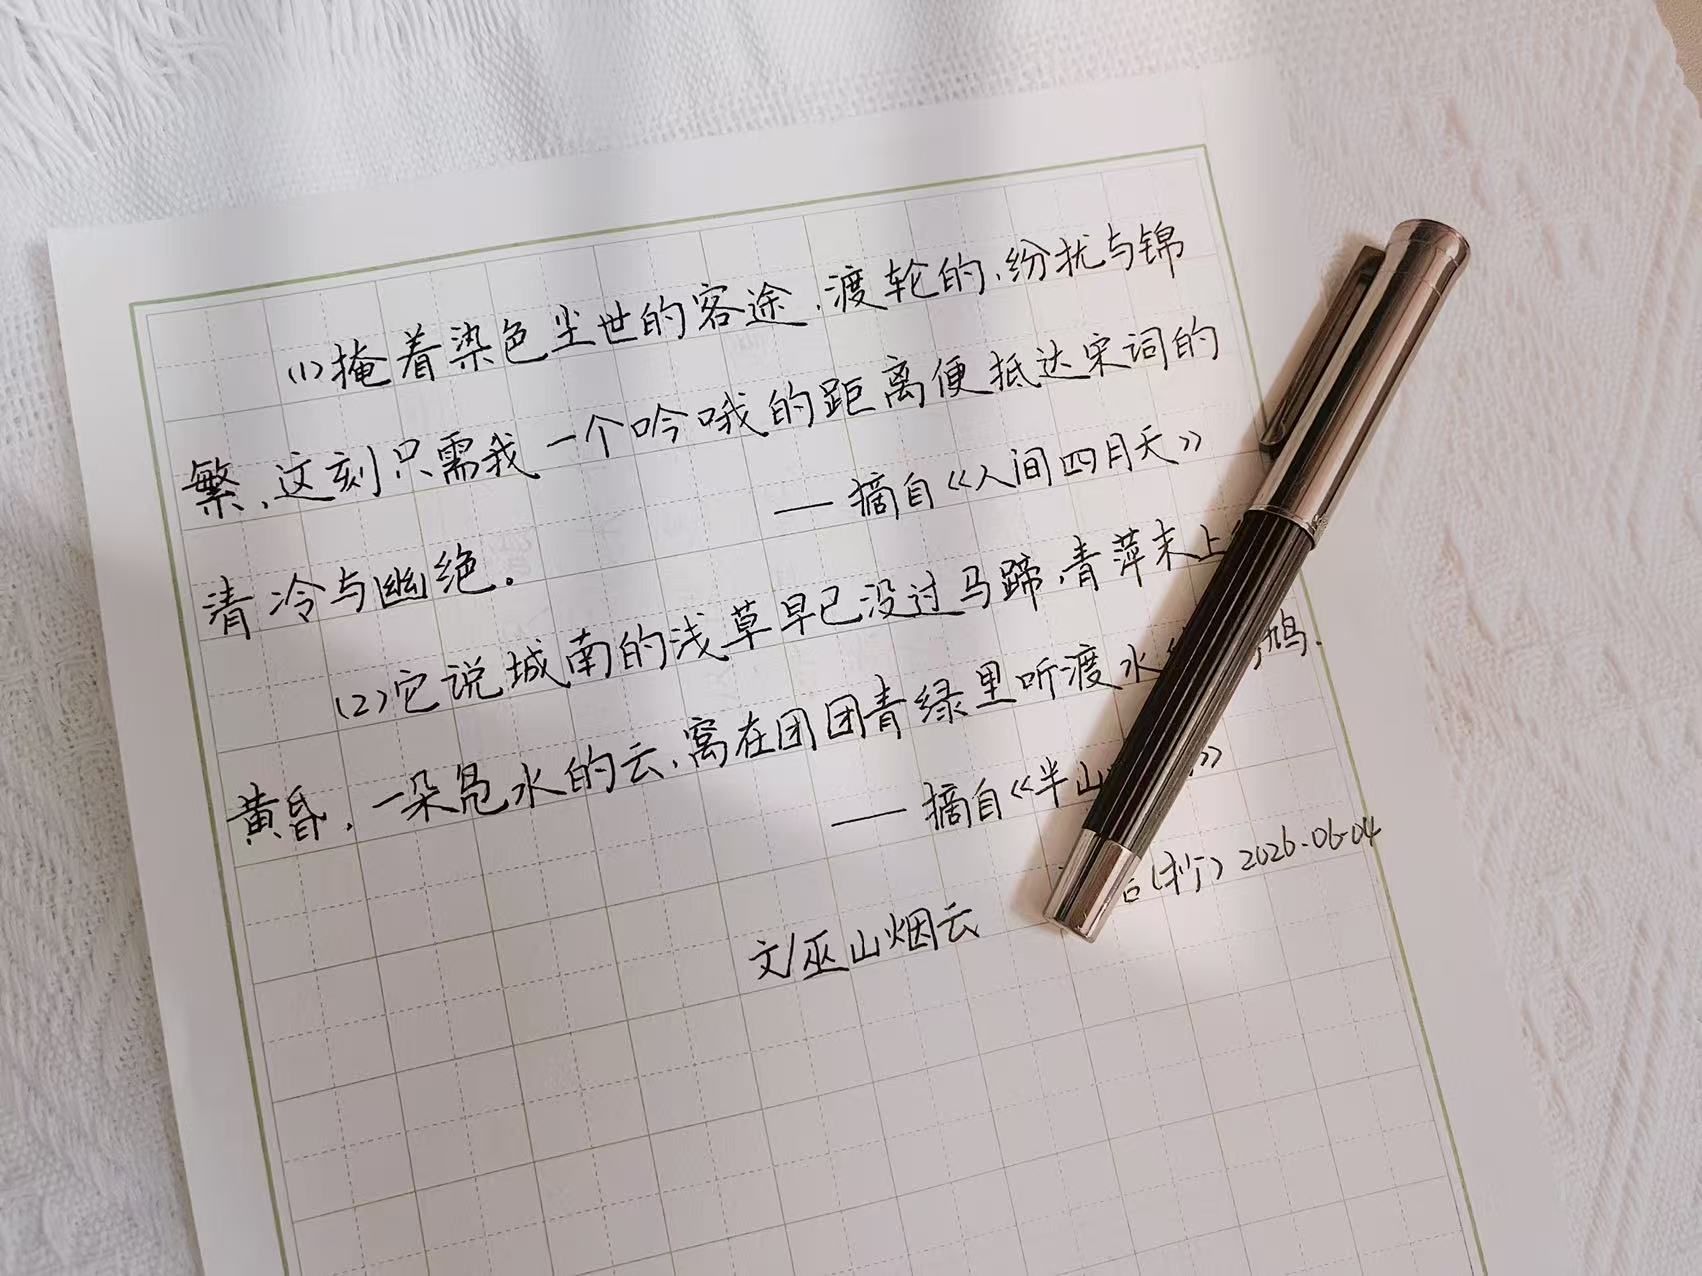 (1)掩着染色尘世的客途,渡轮的,纷扰与锦
繁,这刻只需我一个吟哦的距离便抵达宋词的
清冷与幽绝。
——摘自《人间四月天》
(2)它说城南的浅草早已没过马蹄,青萍末上
黄昏,一朵凫水的云,窝在团团青绿里听渡水 鸠.
——摘自《半山 》
文/巫山烟云
(抄)2026.06.04